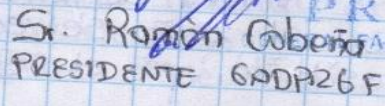 Sr. Ramón Cobeña
PRESIDENTE GADP26F